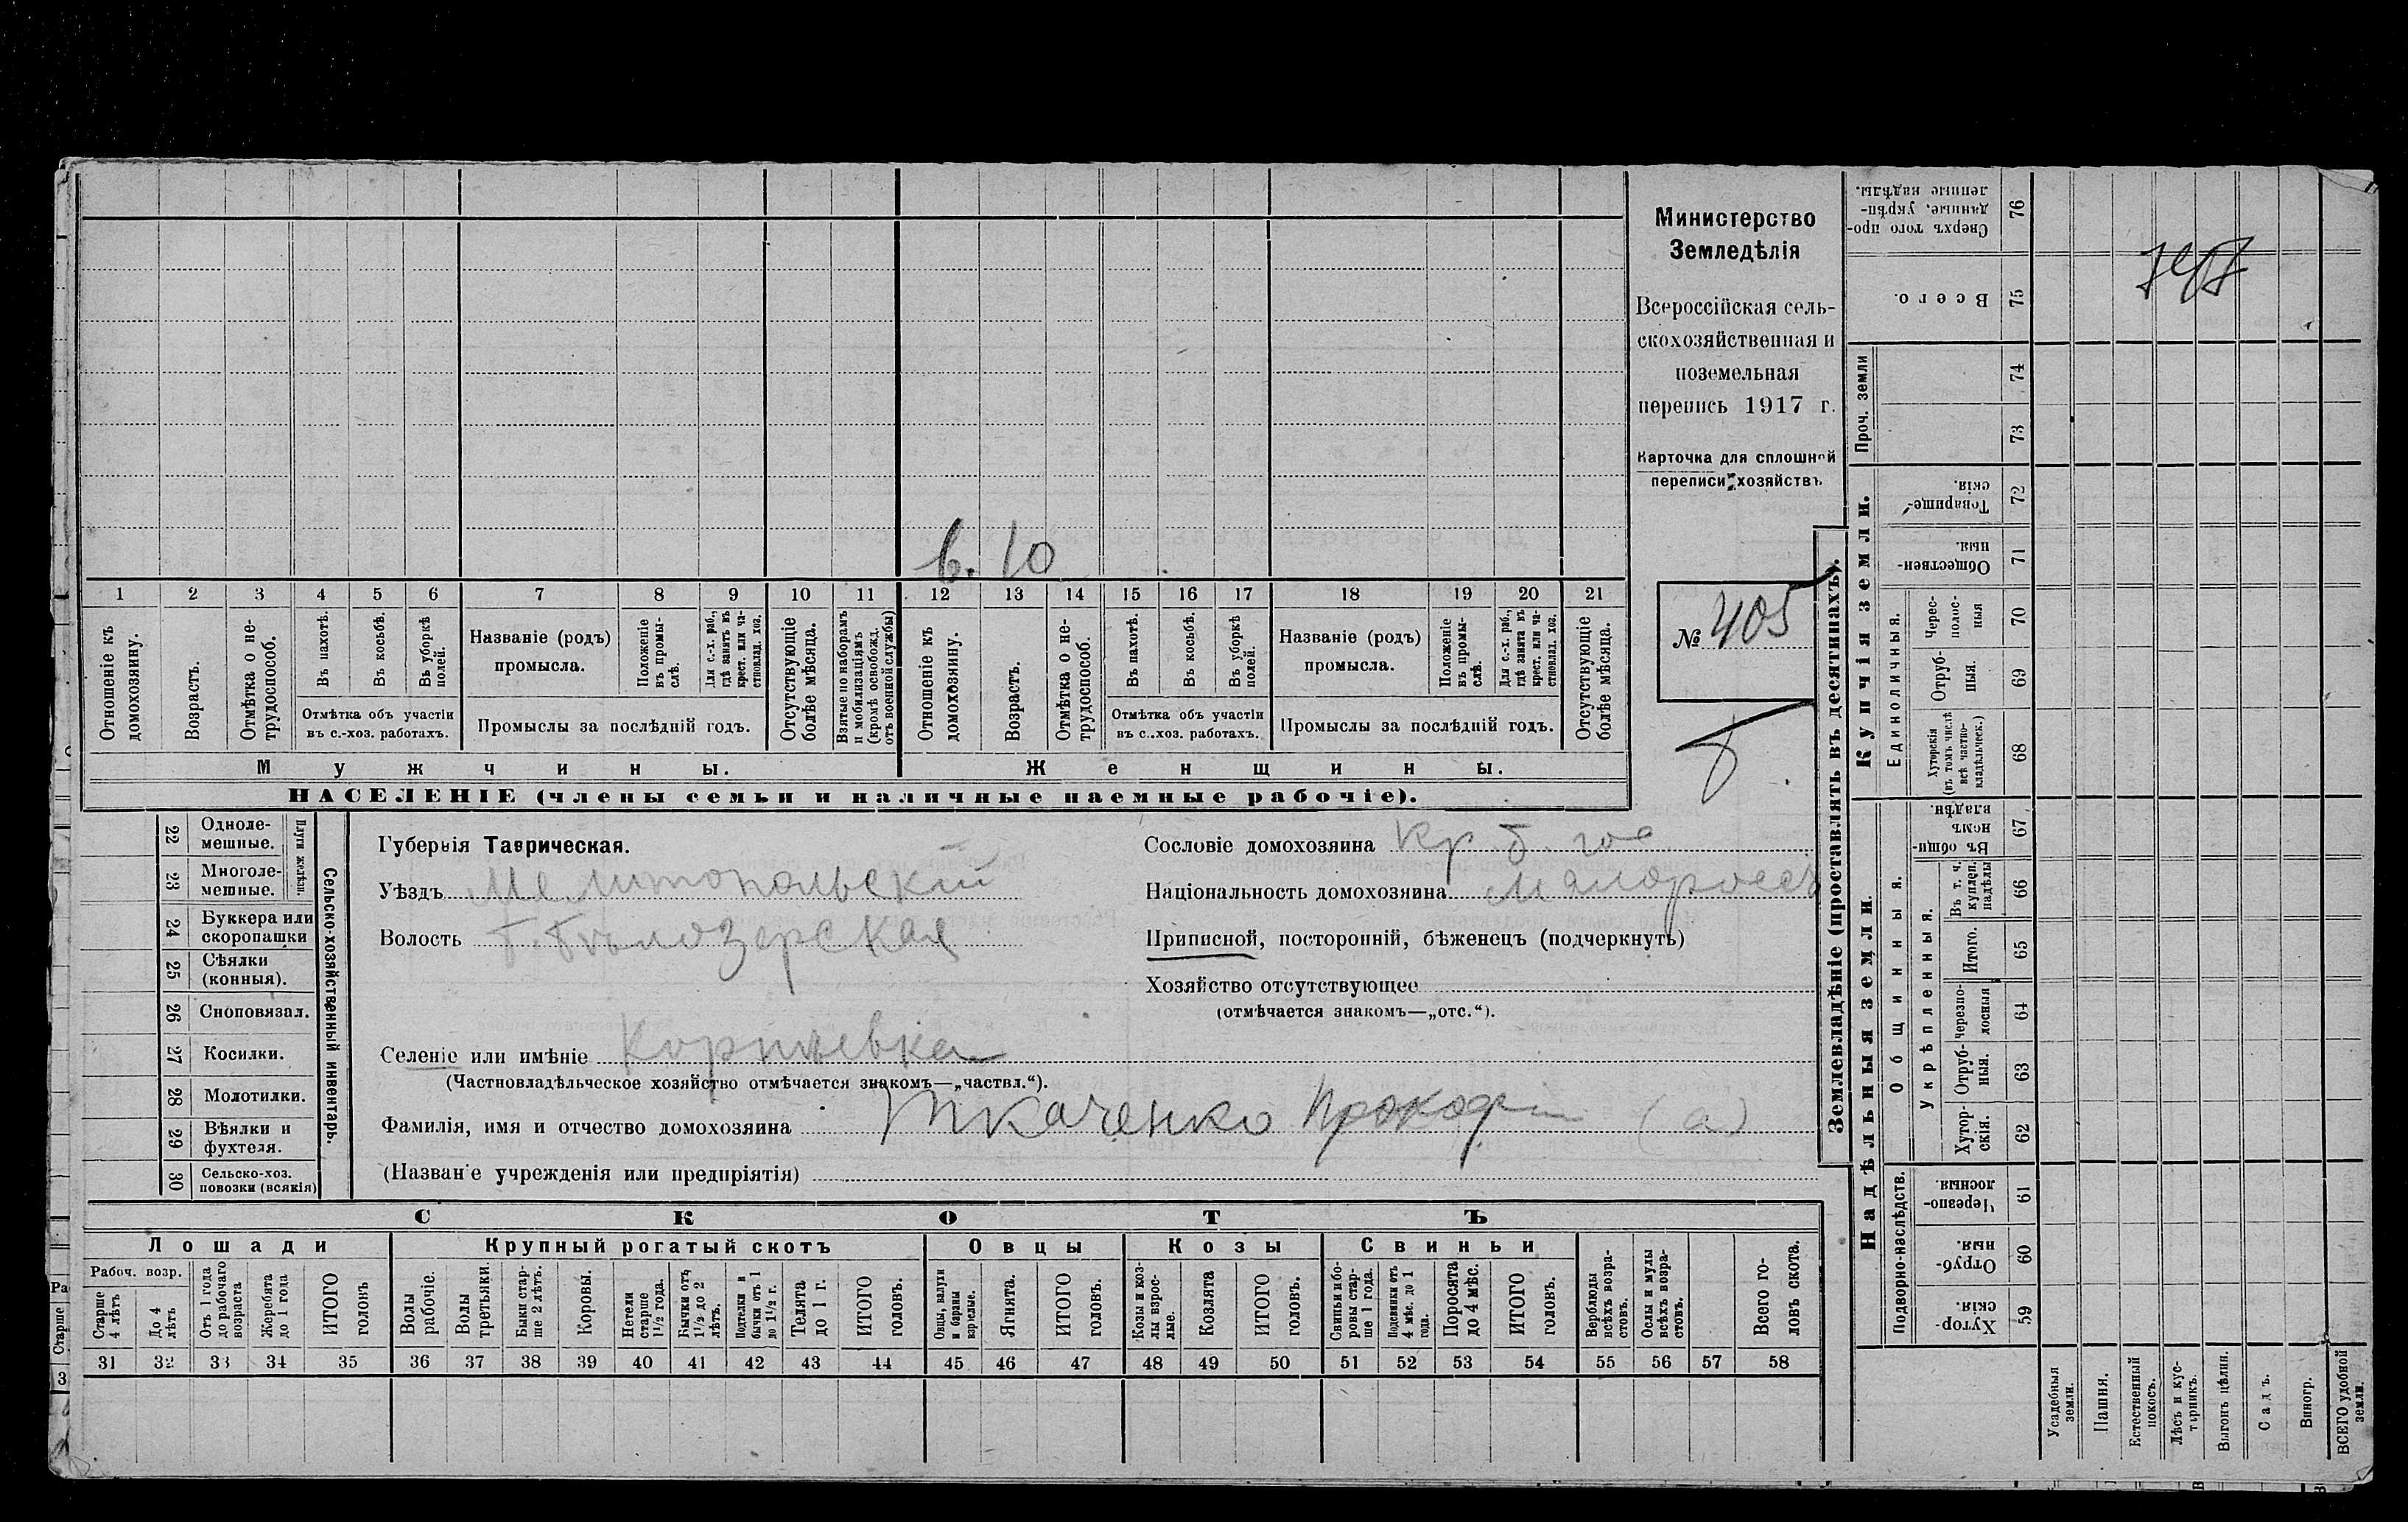 Министерство
Земледѣлія
Всероссійская сель-
скохозяйственная и
поземельная
перепись 1917 г.
Карточка для сплошной
переписи хозяйствъ
№ 405
в. 10
1 2 3 4 5 6 7 8 9 10 11 12 13 14 15 16 17 18 19 20 21
Отношеніе къ домохозяину.
Возрастъ.
Отмѣтка о не-трудоспособ.
Въ пахотѣ.
Въ косьбѣ.
Въ уборкѣ полей.
Отмѣтка объ участіи
въ с.-хоз. работахъ.
Названіе (родъ)
промысла.
Положеніе въ промы-слѣ.
Для с.-х. раб., гдѣ занятъ въ крест. или ча-стновлад. хоз.
Промыслы за послѣдній годъ.
Отсутствующіе болѣе мѣсяца.
Взятые по наборамъ и мобилизаціямъ (кромѣ освобожд. отъ военной службы)
Отношеніе къ домохозяину.
Возрастъ.
Отмѣтка о не-трудоспособ.
Въ пахотѣ.
Въ косьбѣ.
Въ уборкѣ полей.
Отмѣтка объ участіи
въ с.-хоз. работахъ.
Названіе (родъ)
промысла.
Положеніе въ промы-слѣ.
Для с.-х. раб., гдѣ занята въ крест. или ча-стновлад. хоз.
Промыслы за послѣдній годъ.
Отсутствующіе болѣе мѣсяца.
Мужчины. Женщины.
НАСЕЛЕНІЕ (члены семьи и наличные наемные рабочіе).
22 Одноле-мешные.
23 Многоле-мешные.
Плуги желѣзн.
24 Буккера или скоропашки
25 Сѣялки (конныя).
26 Сноповязал.
27 Косилки.
28 Молотилки.
29 Вѣялки и фухтеля.
30 Сельско-хоз. повозки (всякія)
Сельско-хозяйственный инвентарь.
Губернія Таврическая.
Уѣздъ Мелитопольскій
Волость Б. Бѣлозерская
Селеніе или имѣніе Корнѣевка
(Частновладѣльческое хозяйство отмѣчается знакомъ—„частвл.“).
Фамилія, имя и отчество домохозяина Ткаченко Прокофи (а)
(Названіе учрежденія или предпріятія)
Сословіе домохозяина Кр. б. гос.
Національность домохозяина Малороссъ
Приписной, посторонній, бѣженецъ (подчеркнуть)
Хозяйство отсутствующее
(отмѣчается знакомъ—„отс.“).
СКОТЪ
Лошади Крупный рогатый скотъ Овцы Козы Свиньи
Рабоч. возр.
Старше 4 лѣтъ
До 4 лѣтъ
Отъ 1 года до рабочаго возраста
Жеребята до 1 года
ИТОГО головъ
Волы рабочіе.
Волы третьяки.
Быки стар-ше 2 лѣтъ.
Коровы.
Нетели старше 1½ года.
Бычки отъ 1½ до 2 лѣтъ.
Подтелки и бычки отъ 1 до 1½ г.
Телята до 1 г.
ИТОГО головъ.
Овцы, валухи и бараны взрослые.
Ягнята.
ИТОГО головъ.
Козы и коз-лы взрос-лые.
Козлята
ИТОГО головъ.
Свиньи и бо-ровы стар-ше 1 года.
Подсвинки отъ 4 мѣс. до 1 года.
Поросята до 4 мѣс.
ИТОГО головъ.
Верблюды всѣхъ возра-стовъ.
Ослы и мулы всѣхъ возра-стовъ.
Всего го-ловъ скота.
31 32 33 34 35 36 37 38 39 40 41 42 43 44 45 46 47 48 49 50 51 52 53 54 55 56 57 58
Землевладѣніе (проставлять въ десятинахъ).
Надѣльныя земли.
Купчія земли.
Проч. земли
Подворно-наслѣдств.
Общинныя.
Укрѣпленныя.
Единоличныя.
Сверхъ того про-данные, укрѣп-ленные надѣлы. 76
Всего. 75
74
73
Товарище-скія. 72
Обществен-ныя. 71
Черес-полос-ныя 70
Отруб-ныя. 69
Хуторскія (въ томъ числѣ всѣ частно-владѣльческ.) 68
Въ общи-номъ владѣн. 67
Въ т. ч. куплен. надѣлы 66
Итого. 65
Черезпо-лосныя 64
Отруб-ныя. 63
Хутор-скія. 62
Черезпо-лосныя 61
Отруб-ныя. 60
Хутор-скія. 59
Усадебныя земли.
Пашня.
Естественный покосъ.
Лѣсъ и кус-тарникъ.
Выгонъ цѣлин.
Садъ.
Виногр.
ВСЕГО удобной земли.